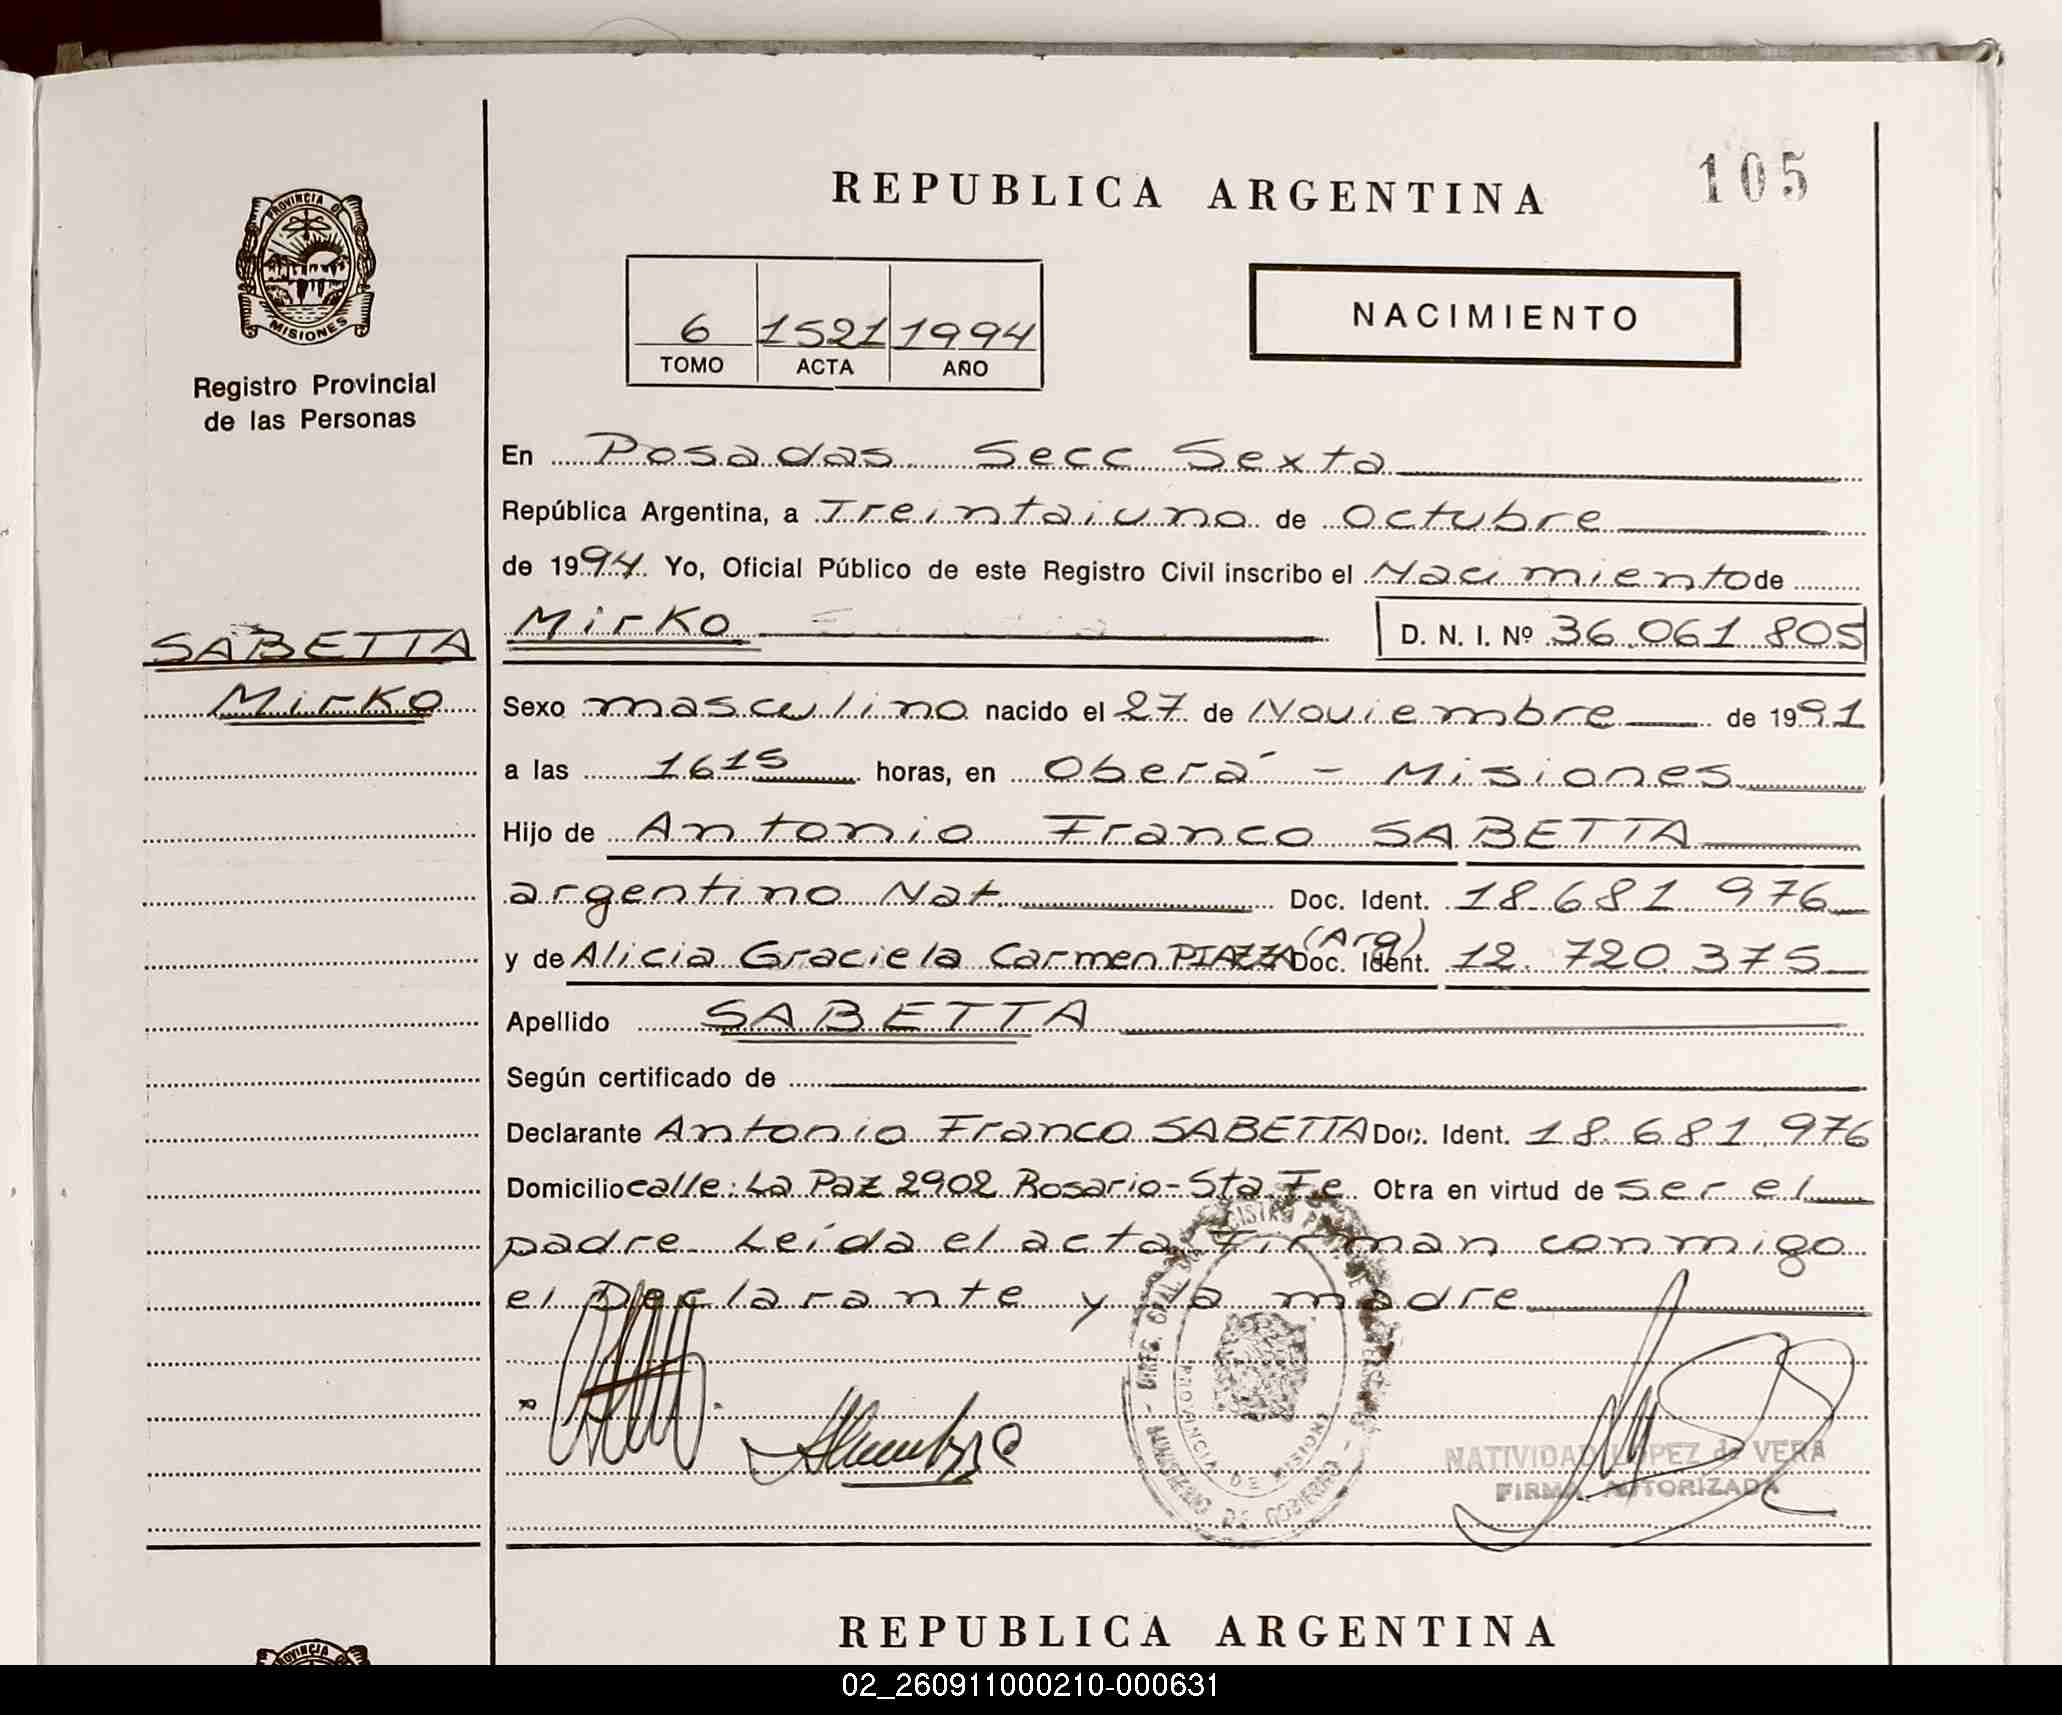 REPUBLICA ARGENTINA
105
PROVINCIA DE
MISIONES
Registro Provincial
de las Personas
6 1521 1994
TOMO ACTA AÑO
NACIMIENTO
En Posadas Secc Sexta
República Argentina, a Treintaiuno de Octubre
de 1994 Yo, Oficial Público de este Registro Civil inscribo el Nacimiento de
SABETTA
Mirko
Mirko D. N. I. Nº 36.061.805
Sexo masculino nacido el 27 de Noviembre de 1991
a las 16 15 horas, en Oberá - Misiones
Hijo de Antonio Franco SABETTA
argentino Nat. Doc. Ident. 18.681.976
y de Alicia Graciela Carmen PIAZZA (Arg) Doc. Ident. 12.720.375
Apellido SABETTA
Según certificado de
Declarante Antonio Franco SABETTA Doc. Ident. 18.681.976
Domicilio calle: La Paz 2902 Rosario-Sta Fe Obra en virtud de ser el
padre Leída el acta Firman conmigo
el Declarante y la madre
PROVINCIA DE MISIONES
MINISTERIO DE GOBIERNO
NATIVIDAD LOPEZ de VERA
FIRMA AUTORIZADA
REPUBLICA ARGENTINA
PROVINCIA
02_260911000210-000631